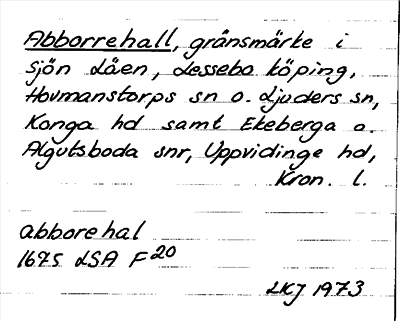 Abborrehall, gränsmärke i
sjön Låen, Lessebo köping,
Hovmanstorps sn o. Ljuders sn,
Konga hd samt Ekeberga o.
Algutsboda snr, Uppvidinge hd,
Kron. l.
abborehal
1675 LSA F20
LKJ 1973